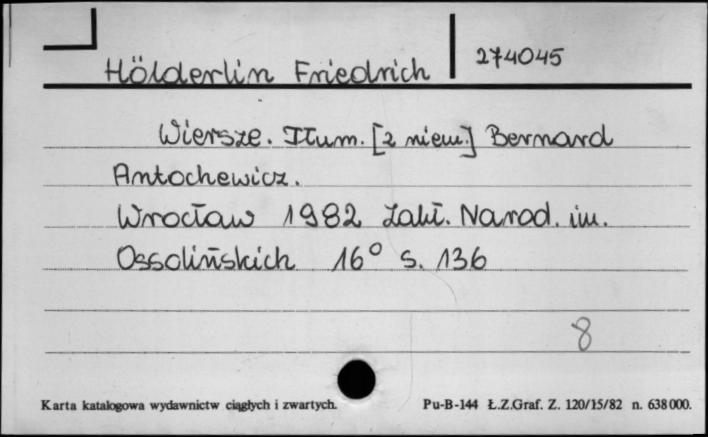 Hölderlin Friedrich 274045
Wiersze. Tłum. [z niem.] Bernard
Antochewicz.
Wrocław 1982 Zakł. Narod. im.
Ossolińskich 16° s. 136
8
Karta katalogowa wydawnictw ciągłych i zwartych.
Pu-B-144 Ł.Z.Graf. Z. 120/15/82 n. 638000.